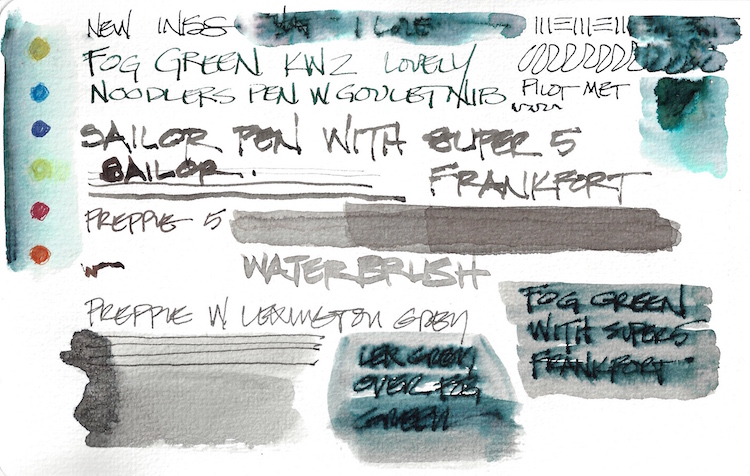 NEW INKS I LOVE
FOG GREEN KWZ LOVELY
NOODLERS PEN W GOULET NIB
PILOT MET
SAILOR PEN WITH SUPER 5
SAILOR.
FRANKFORT
PREPPIE 5
WATERBRUSH
PREPPIE W LEXINGTON GREY
FOG GREEN
WITH SUPER5
FRANKFORT
LEX GREY
OVER FOG
GREEN